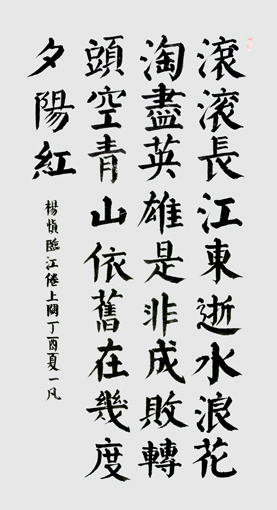 滾滚長江東逝水浪花
淘盡英雄是非成敗轉
頭空青山依舊在幾度
夕陽紅
楊慎臨江僊上闋丁酉夏一凡